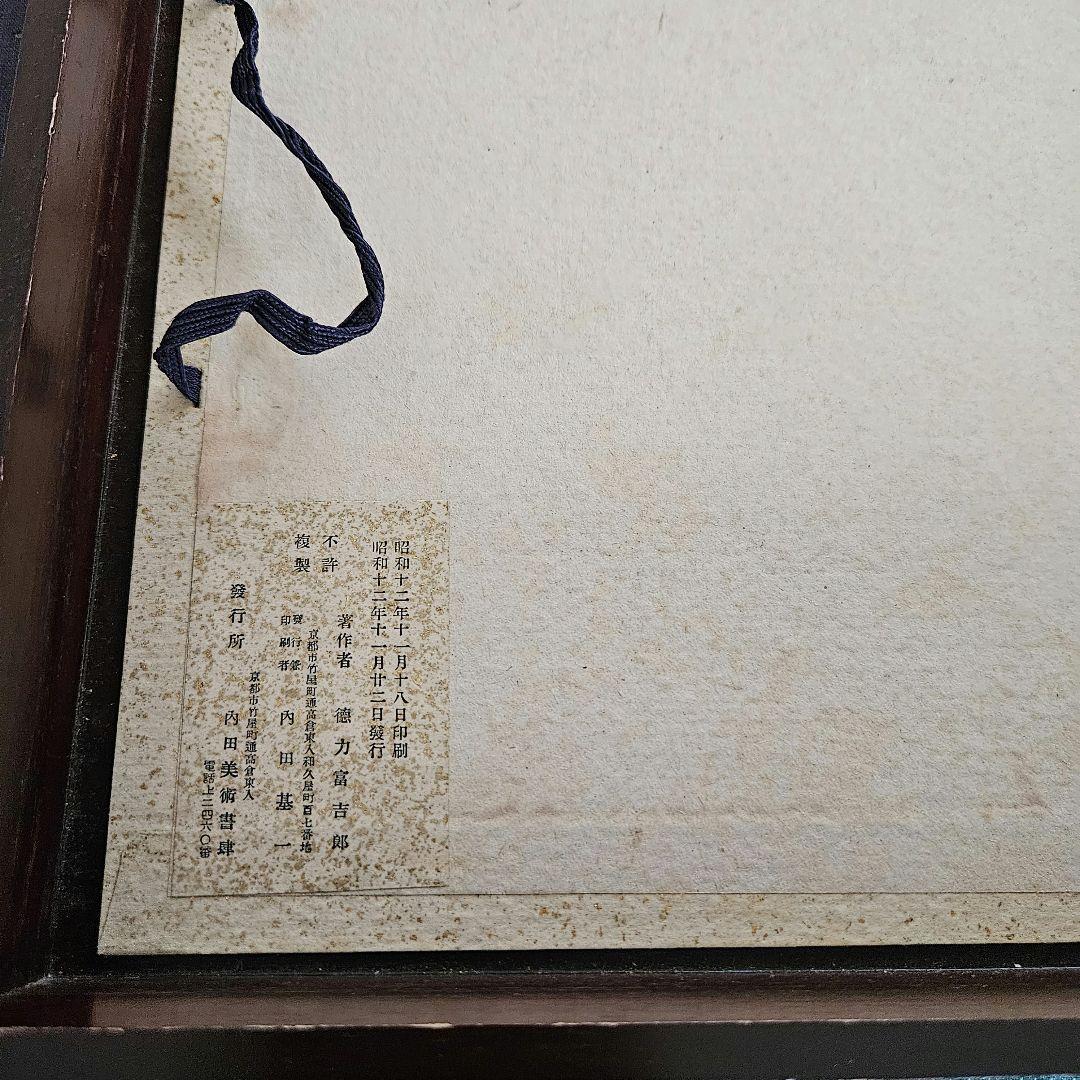 昭和十二年十一月十八日印刷
昭和十二年十一月廿二日發行
不許
複製
著作者 德力富吉郎
京都市竹屋町通高倉東入和久屋町百七番地
發行兼
印刷者 內田基一
發行所
京都市竹屋町通高倉東入
內田美術書肆
電話上二四六〇番